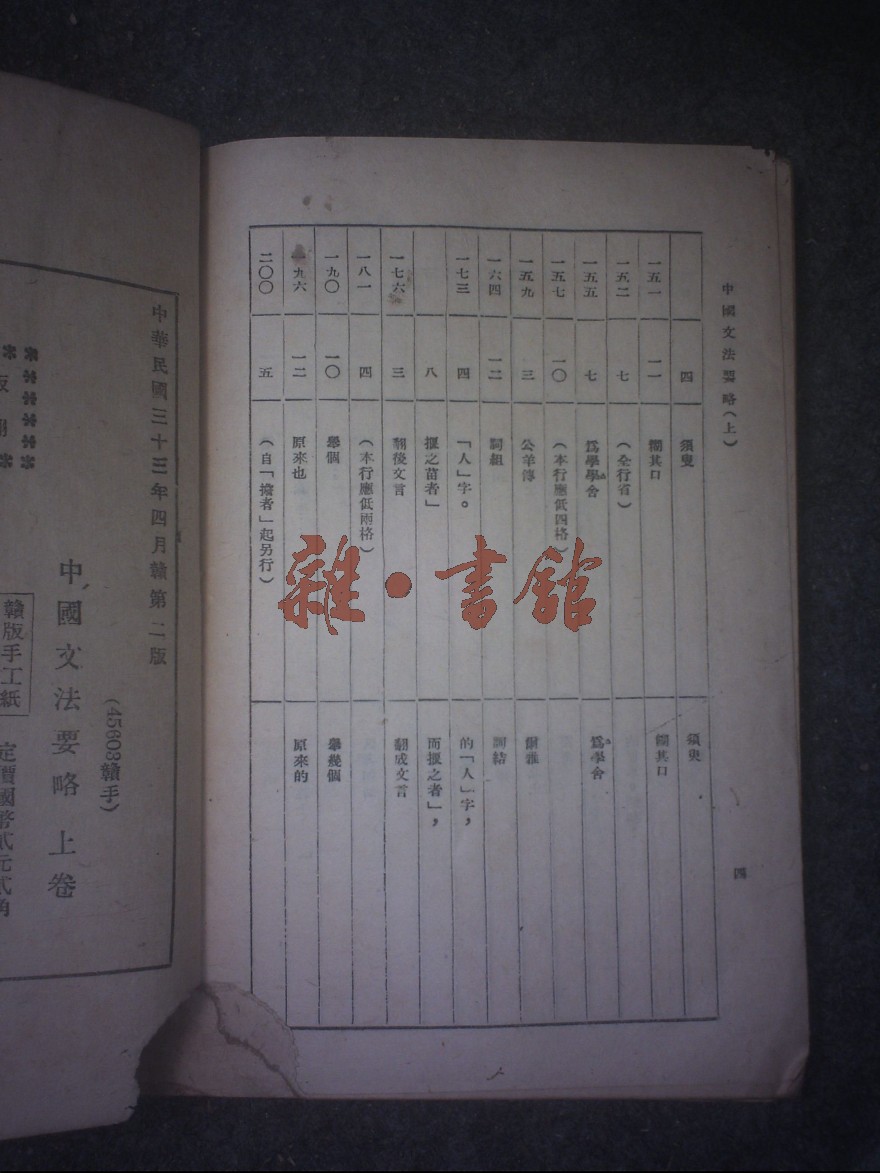 中國文法要略(上)
四
四 須㬰 須臾
一五一 一一 糊其口 餬其口
一五二 七 (全行省)
一五五 七 爲學學舍 爲學舍
一五七 一〇 (本行應低四格)
一五九 三 公羊傳 爾雅
一六四 一二 詞組 詞結
一七三 四 「人」字。 的「人」字,
八 揠之苗者」 而揠之者」,
一七六 三 翻後文言 翻成文言
一八一 四 (本行應低兩格)
一九〇 一〇 舉個 舉幾個
一九六 一二 原來也 原來的
二〇〇 五 (自「擒者」起另行)
雜·書館
中華民國三十三年四月贛第二版
(45603贛手)
中國文法要略 上卷
贛版手工紙
定價國幣貳元貳角